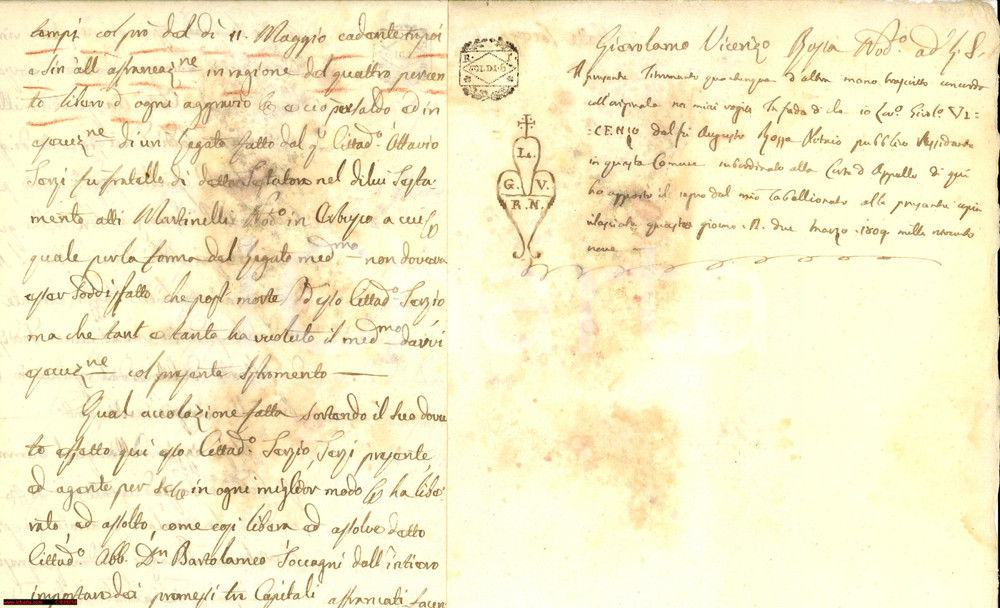 tempi col prò del dì 11. Maggio cadente in poi
e sin' all' affrancaz.ne in ragione del quattro per cen
to libero d' ogni aggravio e ciò per saldo ed in
esecuz.ne di un Legato fatto dal q. Cittad.o Ottavio
Serzi fu fratello di detto nel di lui Testa-
mento atti Martinelli Nod.o in Orbisco a cui
quale per la forma del Legato med.mo non doveva
esser soddisfatto che post mortem d'esso Cittad.o Serzio
ma che tant e tanto ha voluto il med.mo darvi
esecuz.ne col presente Istromento
Qual accolazione fatta sortendo il suo dovu
to effetto qui esso Cittad.o Serzio Serzi presente
ed agente per se in ogni miglior modo ha libe-
rato ed assolto, come così libera ed assolve detto
Cittad.o Abb. D.n Bartolameo Soccagni dall' intiero
importare dei promessi tre Capitali affrancati
R. I.
SOLDI 6
L.
G. V.
R. N.
Girolamo Vicenzo Rossa Nod.o
Il presente Istrumento quantunque d'altra mano trascritto concorda
coll' originale ne miei rogiti In fede di che io Girol.o VI=
=CENZO del fù Augusto Rossa Notaio pubblico Residente
in questa Comune subordinato alla Corte d'Appello di
ho apposto il segno del mio Tabellionato alla presente copia
rilasciata questo giorno due marzo 1809 mille ottocento
nove